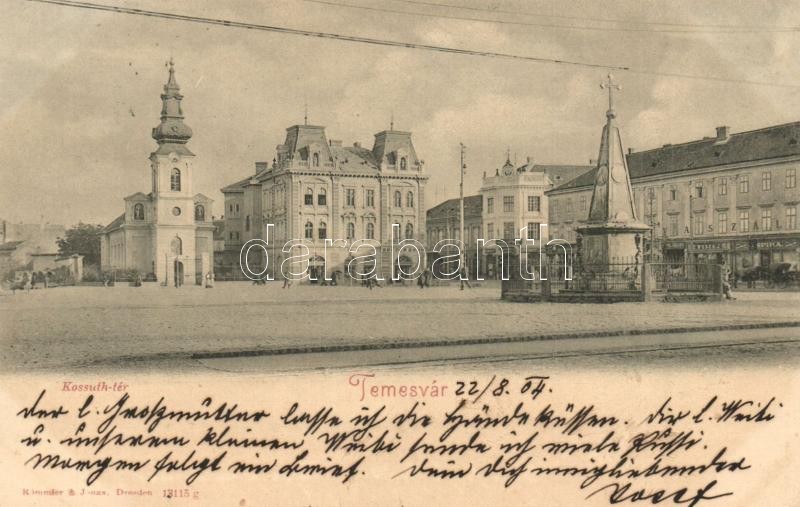 ALSZA
darabanth
Kossuth-tér
Temesvár 22/8. 04.
der l. Großmutter lasse ich die Hände küssen. Dir l. Weiti
u. unserem kleinen Weibi sende ich viele Pussi.
Morgen folgt ein Brief. Dein Dich innigliebender
Josef
Römmler & Jonas, Dresden 13115 g